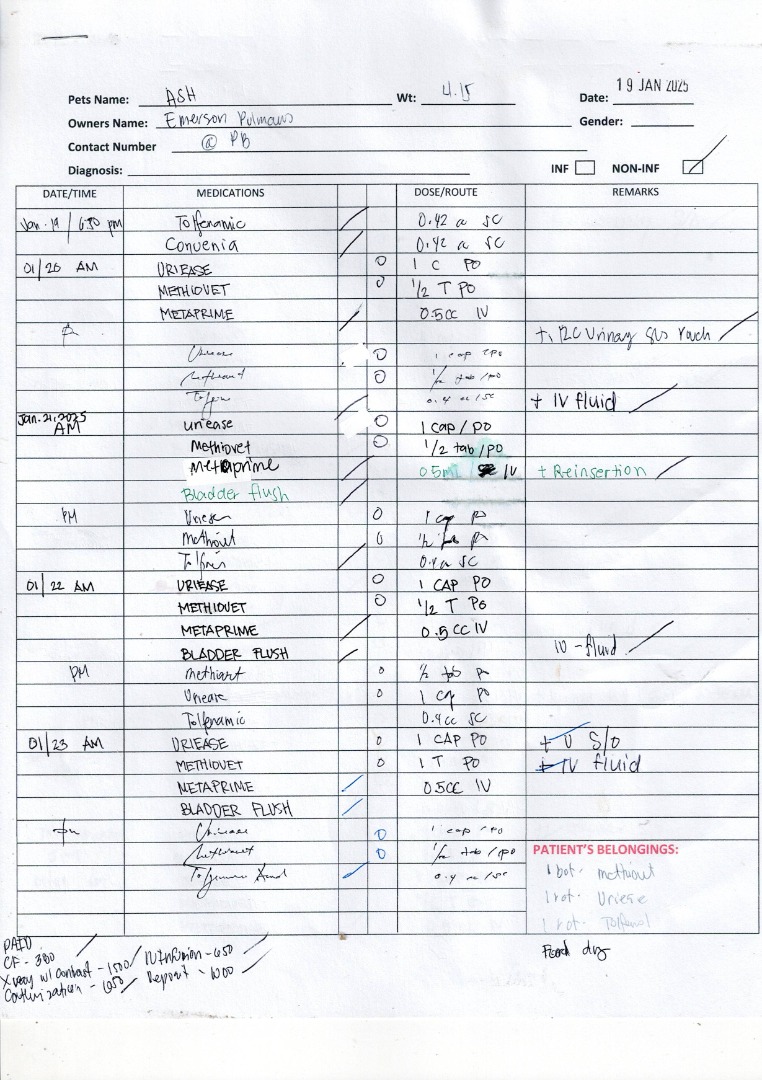 19 JAN 2025
Pets Name: ASH Wt: 4.15 Date:
Owners Name: Emerson Gender:
Contact Number @ PB
Diagnosis: INF NON-INF
DATE/TIME MEDICATIONS DOSE/ROUTE REMARKS
Jan. 19 / 6:30 pm Tolfenamic 0.42 SC
Convenia 0.42 SC
01/20 AM URIEASE O 1 C PO
METHIOVET O 1/2 T PO
METAPRIME 0.5CC IV
Uriease O 1 cap / PO
Methiovet O 1/2 tab / PO
0.4 cc / SC + IV fluid
Jan. 21, 2025
AM uriease O 1 cap / po
Methiovet O 1/2 tab / po
Metaprime 0.5ml IV + Reinsertion
Bladder flush
PM Uriease O 1 cap PO
Methiovet O 1/2 tab PO
0.4 cc SC
01/22 AM URIEASE O 1 CAP PO
METHIOVET O 1/2 T PO
METAPRIME 0.5 CC IV
BLADDER FLUSH IV - fluid
PM Methiovet O 1/2 tab PO
Uriease O 1 cap PO
Tolfenamic 0.4cc SC
01/23 AM URIEASE O 1 CAP PO + U S/O
METHIOVET O 1 T PO + IV fluid
METAPRIME 0.5CC IV
BLADDER FLUSH
Uriease O 1 cap / PO
Methiovet O 1/2 tab / PO PATIENT'S BELONGINGS:
0.4 cc / SC 1 bot. Methiovet
1 bot. Uriease
1 bot.
Food dry
PAID
CF - 380
Xray w/ contrast - 1500 IV Infusion - 650
Deposit - 1000